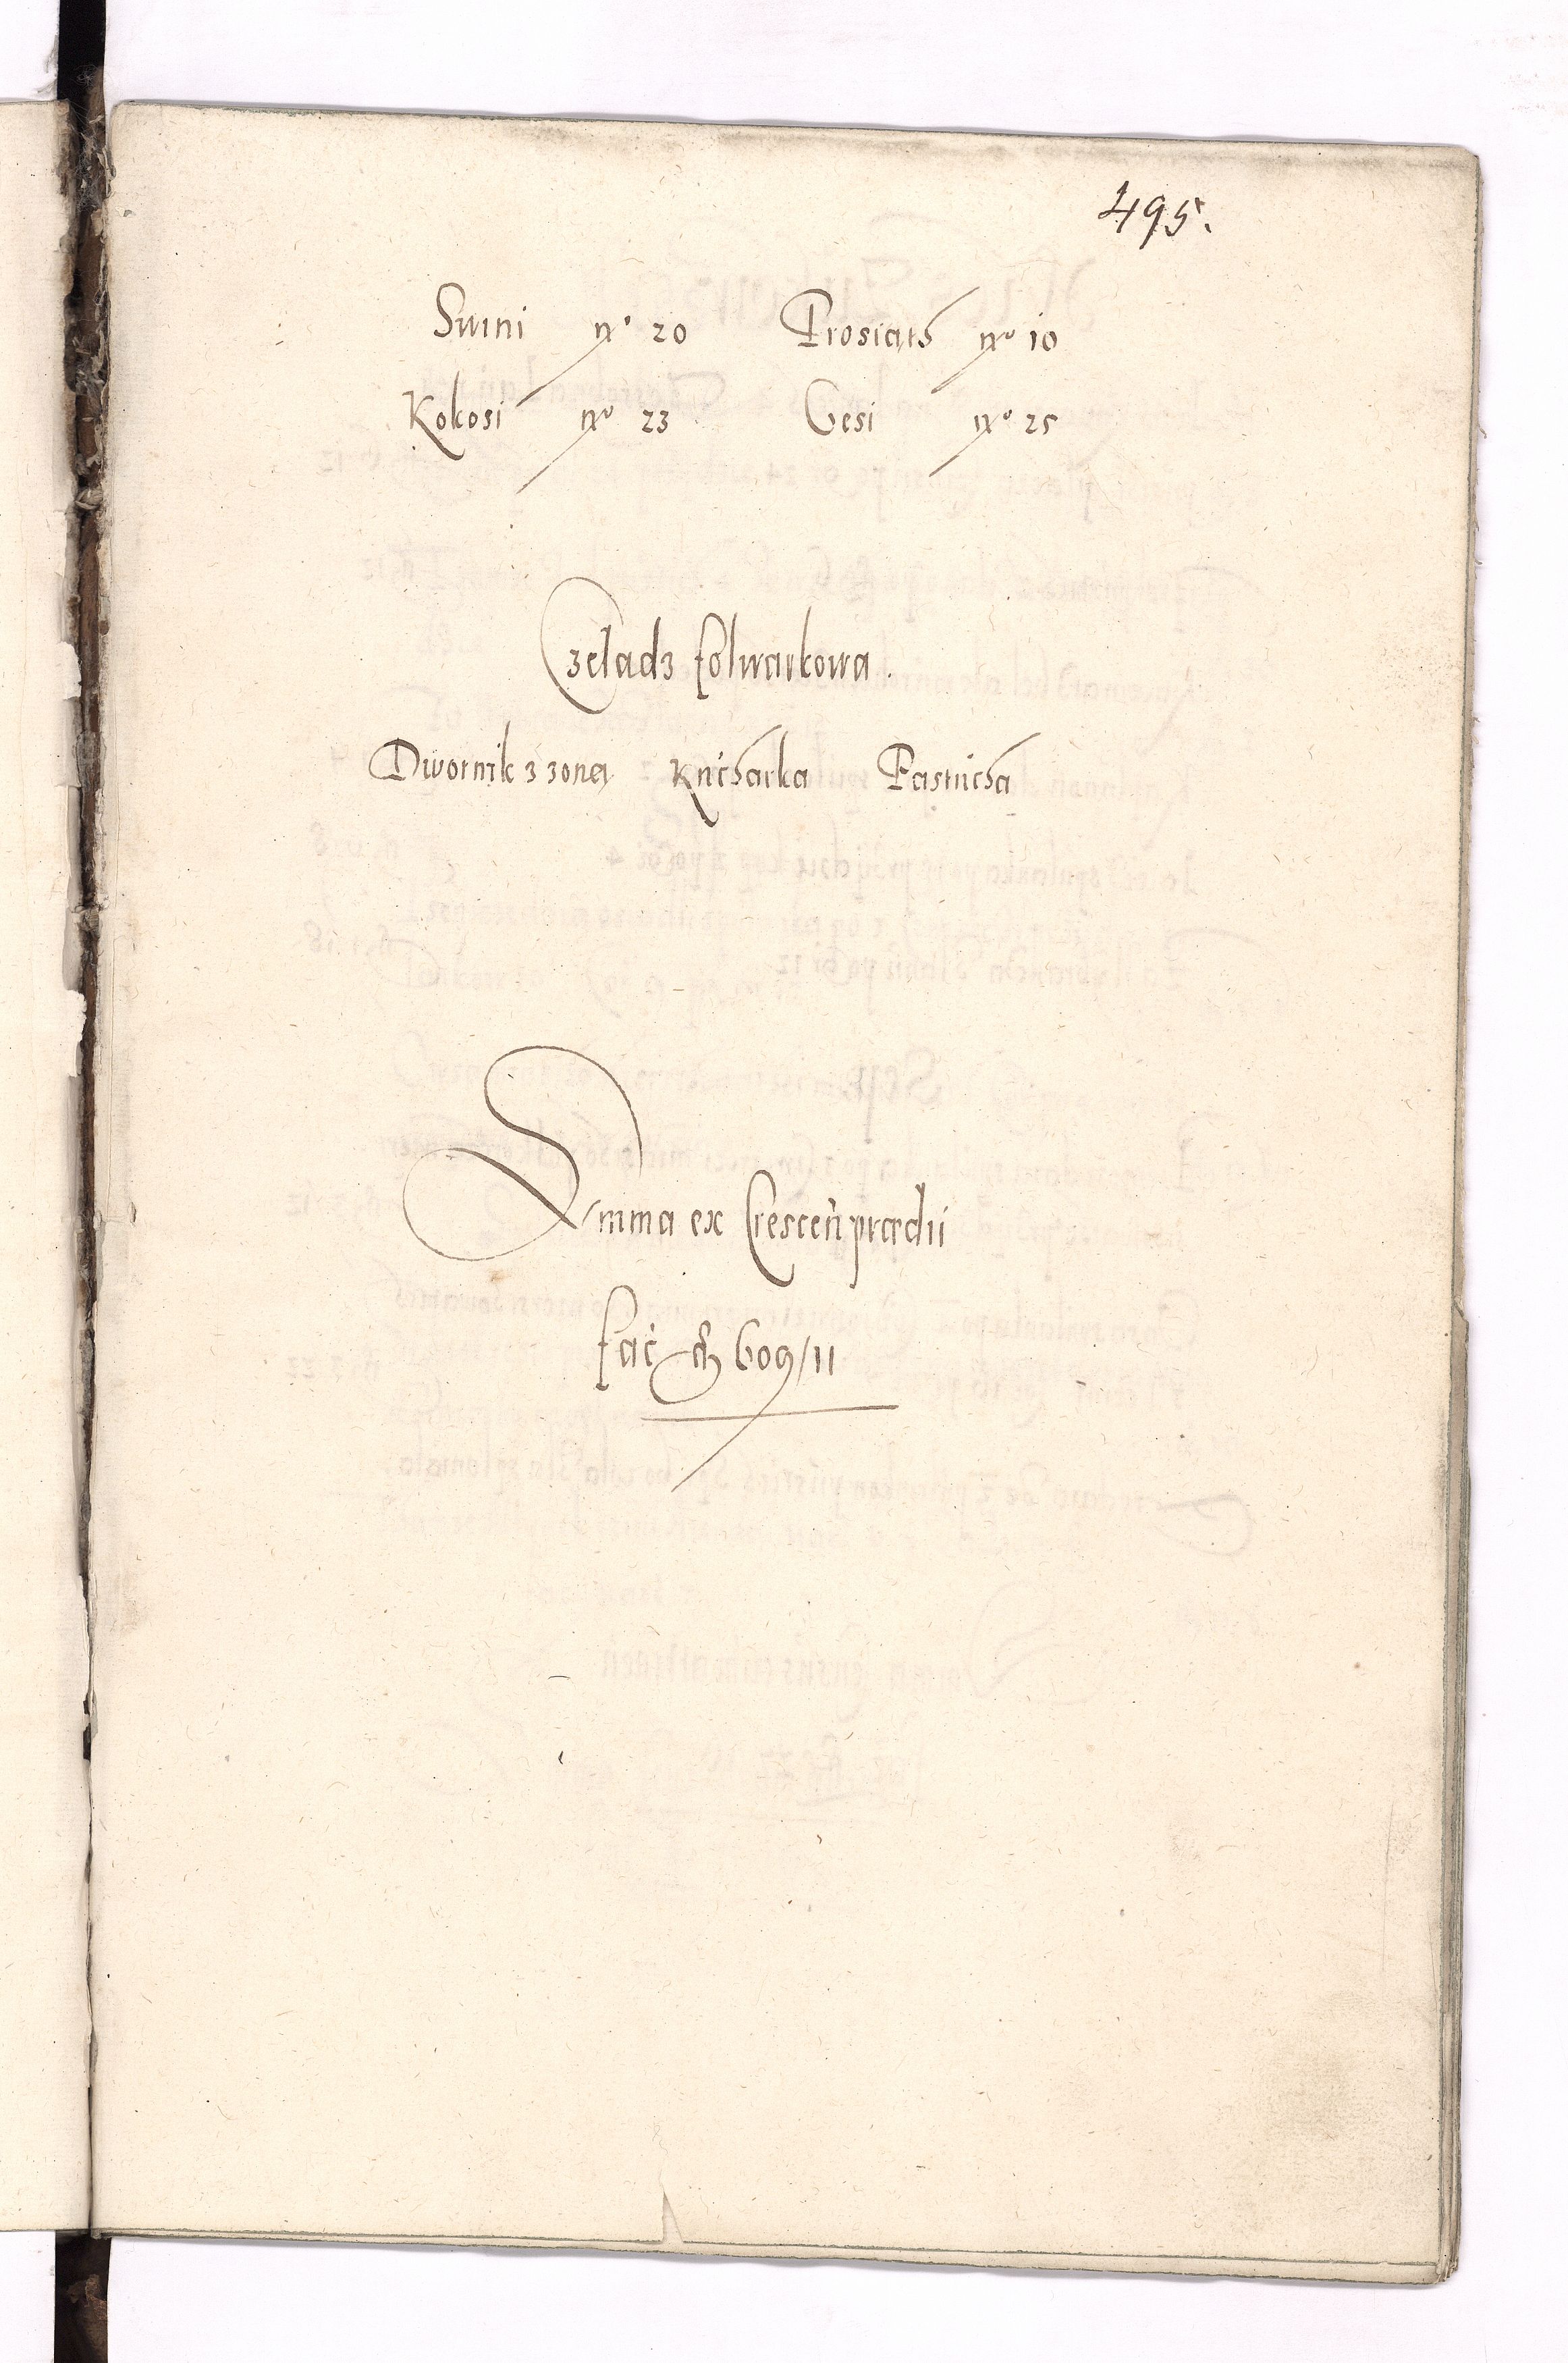 495.
Swini nº 20 Prosiąth nº 10
Kokosi nº 23 Gesi nº 25
Czeladz folwarkowa.
Dwornik z zoną Kucharka Pastucha
Summa ex Crescen prædii
fac 609/11